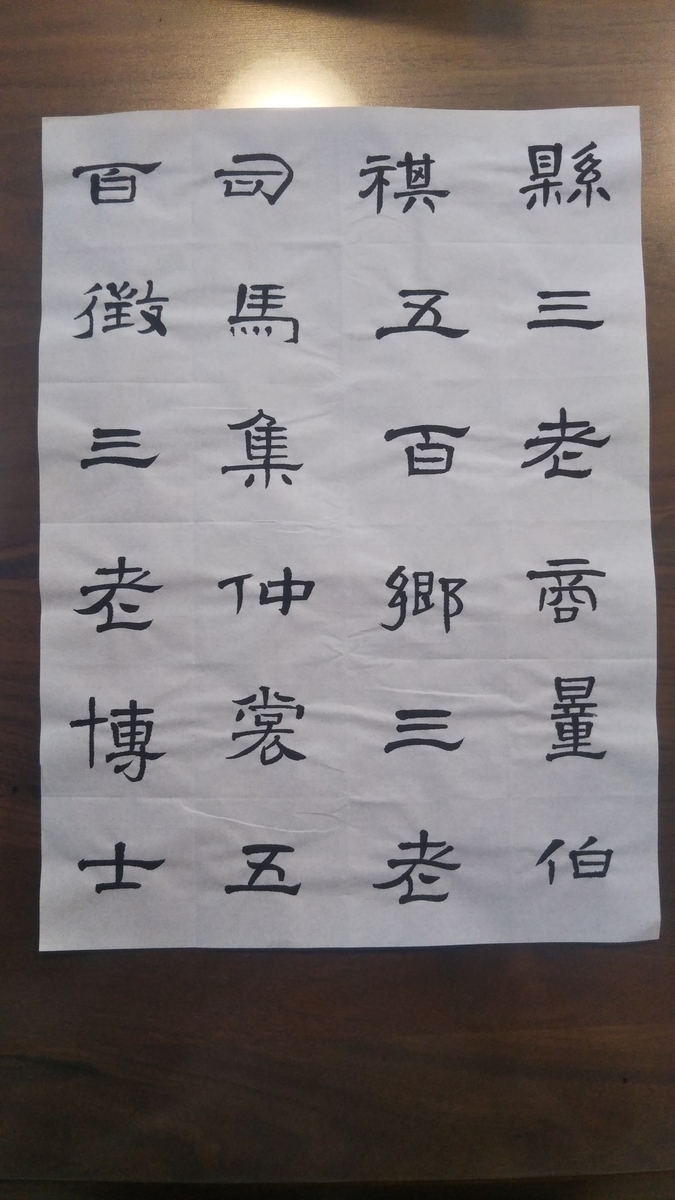 縣三老商量伯
祺五百鄉三老
司馬集仲裳五
百徵三老博士